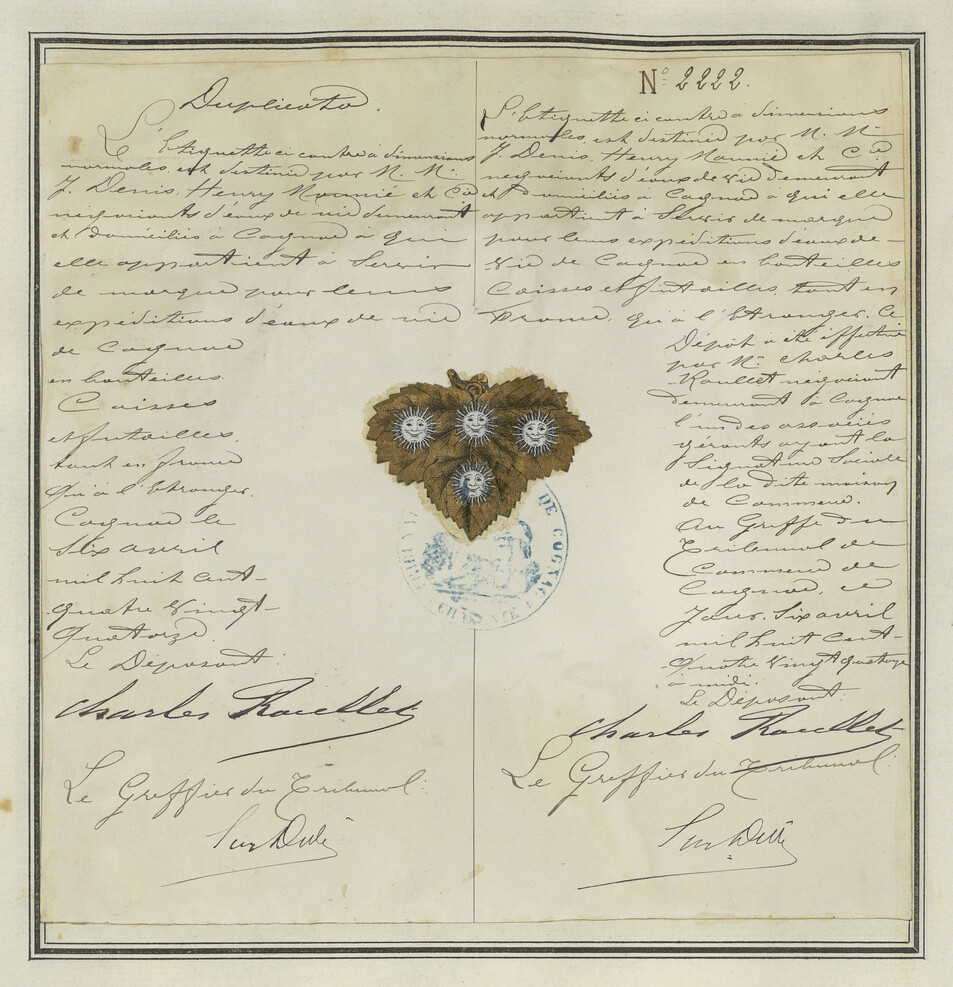 Duplicata.
L'Etiquette ci contre à dimensions
normales, est destinée par M. M.
J. Denis, Henry Mounié et Cie
négociants d'eaux de vie demeurant
et domiciliés à Cognac à qui
elle appartient à Servir
de marque pour leurs
expéditions d'eaux de vie
de Cognac
en bouteilles
Caisses
et futailles,
tant en france
qu'à l'Etranger.
Cognac le
Six avril
mil huit cent-
quatre Vingt-
quatorze.
Le Déposant:
Charles Roullet
Le Greffier du Tribunal:
No 2222.
L'Etiquette ci contre à dimensions
normales, est destinée par M. M.
J. Denis, Henry Mounié et Cie
négociants d'eaux de vie demeurant
et domiciliés à Cognac à qui elle
appartient à Servir de marque
pour leurs expéditions d'eaux-de-
Vie de Cognac en bouteilles
Caisses et futailles, tant en
France, qu'à l'Etranger, Ce
Dépôt a été effectué
par Mr Charles
Roullet négociant
demeurant à Cognac
l'un des associés
gérants ayant la
Signature Sociale
de la dite maison
de Commerce.
Au Greffe du
Tribunal de
Commerce de
Cognac, ce
Jour, Six avril
mil huit cent-
Quatre Vingt quatorze
à midi.
Le Déposant:
Charles Roullet
Le Greffier du Tribunal:
DE COGNAC
CHARENTE